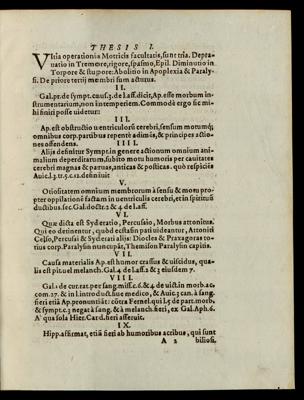 THESIS I.
Vltia operationis Motricis facultatis, sunt tria. Depra-
uatio in Tremore, rigore, spasmo, Epil. Diminutio in
Torpore & stupore: Abolitio in Apoplexia & Paraly-
si. De priore tertij membri sum acturus.
II.
Gal. pr. de sympt. caus. 3. de l. aff. dicit, Ap. esse morbum in-
strumentarium, non intemperiem. Commodè ergo sic mi-
hi finiri posse uidetur:
III.
Ap. est obstructio uentriculorū cerebri, sensum motumq;
omnibus corp. partibus repentè adimēs, & principes actio-
nes offendens.
IIII.
Alijs definitur Sympt. in genere actionum omnium ani-
malium deperditarum, subito motu humoris per cauitates
cerebri magnas & paruas, anticas & posticas. quò respiciēs
Auic. l. 3. tr. 5. c. 12. definiuit
V.
Otiositatem omnium membrorum à sensu & motu pro-
pter oppilationē factam in uentriculis cerebri, et in spirituū
ductibus. sec. Gal. doctr. 2 & 4 de l. aff.
VI.
Quæ dicta est Syderatio, Percussio, Morbus attonitus.
Qui eo detinentur, quòd ecstasin pati uideantur, Attoniti
Celso, Percussi & Syderati alijs: Diocles & Praxagoras to-
tius corp. Paralysin nuncupāt, Themison Paralytin capitis.
VII.
Causa materialis Ap. est humor crassus & uiscidus, qua-
lis est pit. uel melanch. Gal. 4 de l. aff. 2 & 3 eiusdem 7.
VIII.
Gal. 1 de cur. rat. per sang. miss. c. 6. & 4 de uict. in morb. ac.
com. 27. & in Introduct. siue medico, & Auic. 3 can. à sang.
fieri etiā Ap. pronunciāt: cōtra Fernel. qui l. 5 de part. morb.
& sympt. c. 3 negat à sang. & à melanch. fieri, ex Gal. Aph. 6.
A' qua sola Hier. Card. fieri asseruit.
IX.
Hipp. affirmat, etiā fieri ab humoribus acribus, qui sunt
A 2 biliosi,